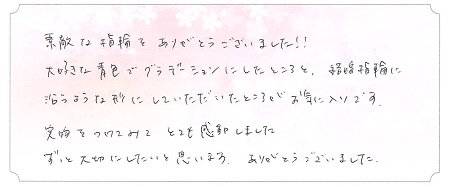 素敵な指輪を ありがとうございました!!
大好きな青色でグラデーションにしたところと、結婚指輪に
沿うような形にしていただいたところがお気に入りです。
実物をつけてみて とても感動しました
ずっと大切にしたいと思います。ありがとうございました。